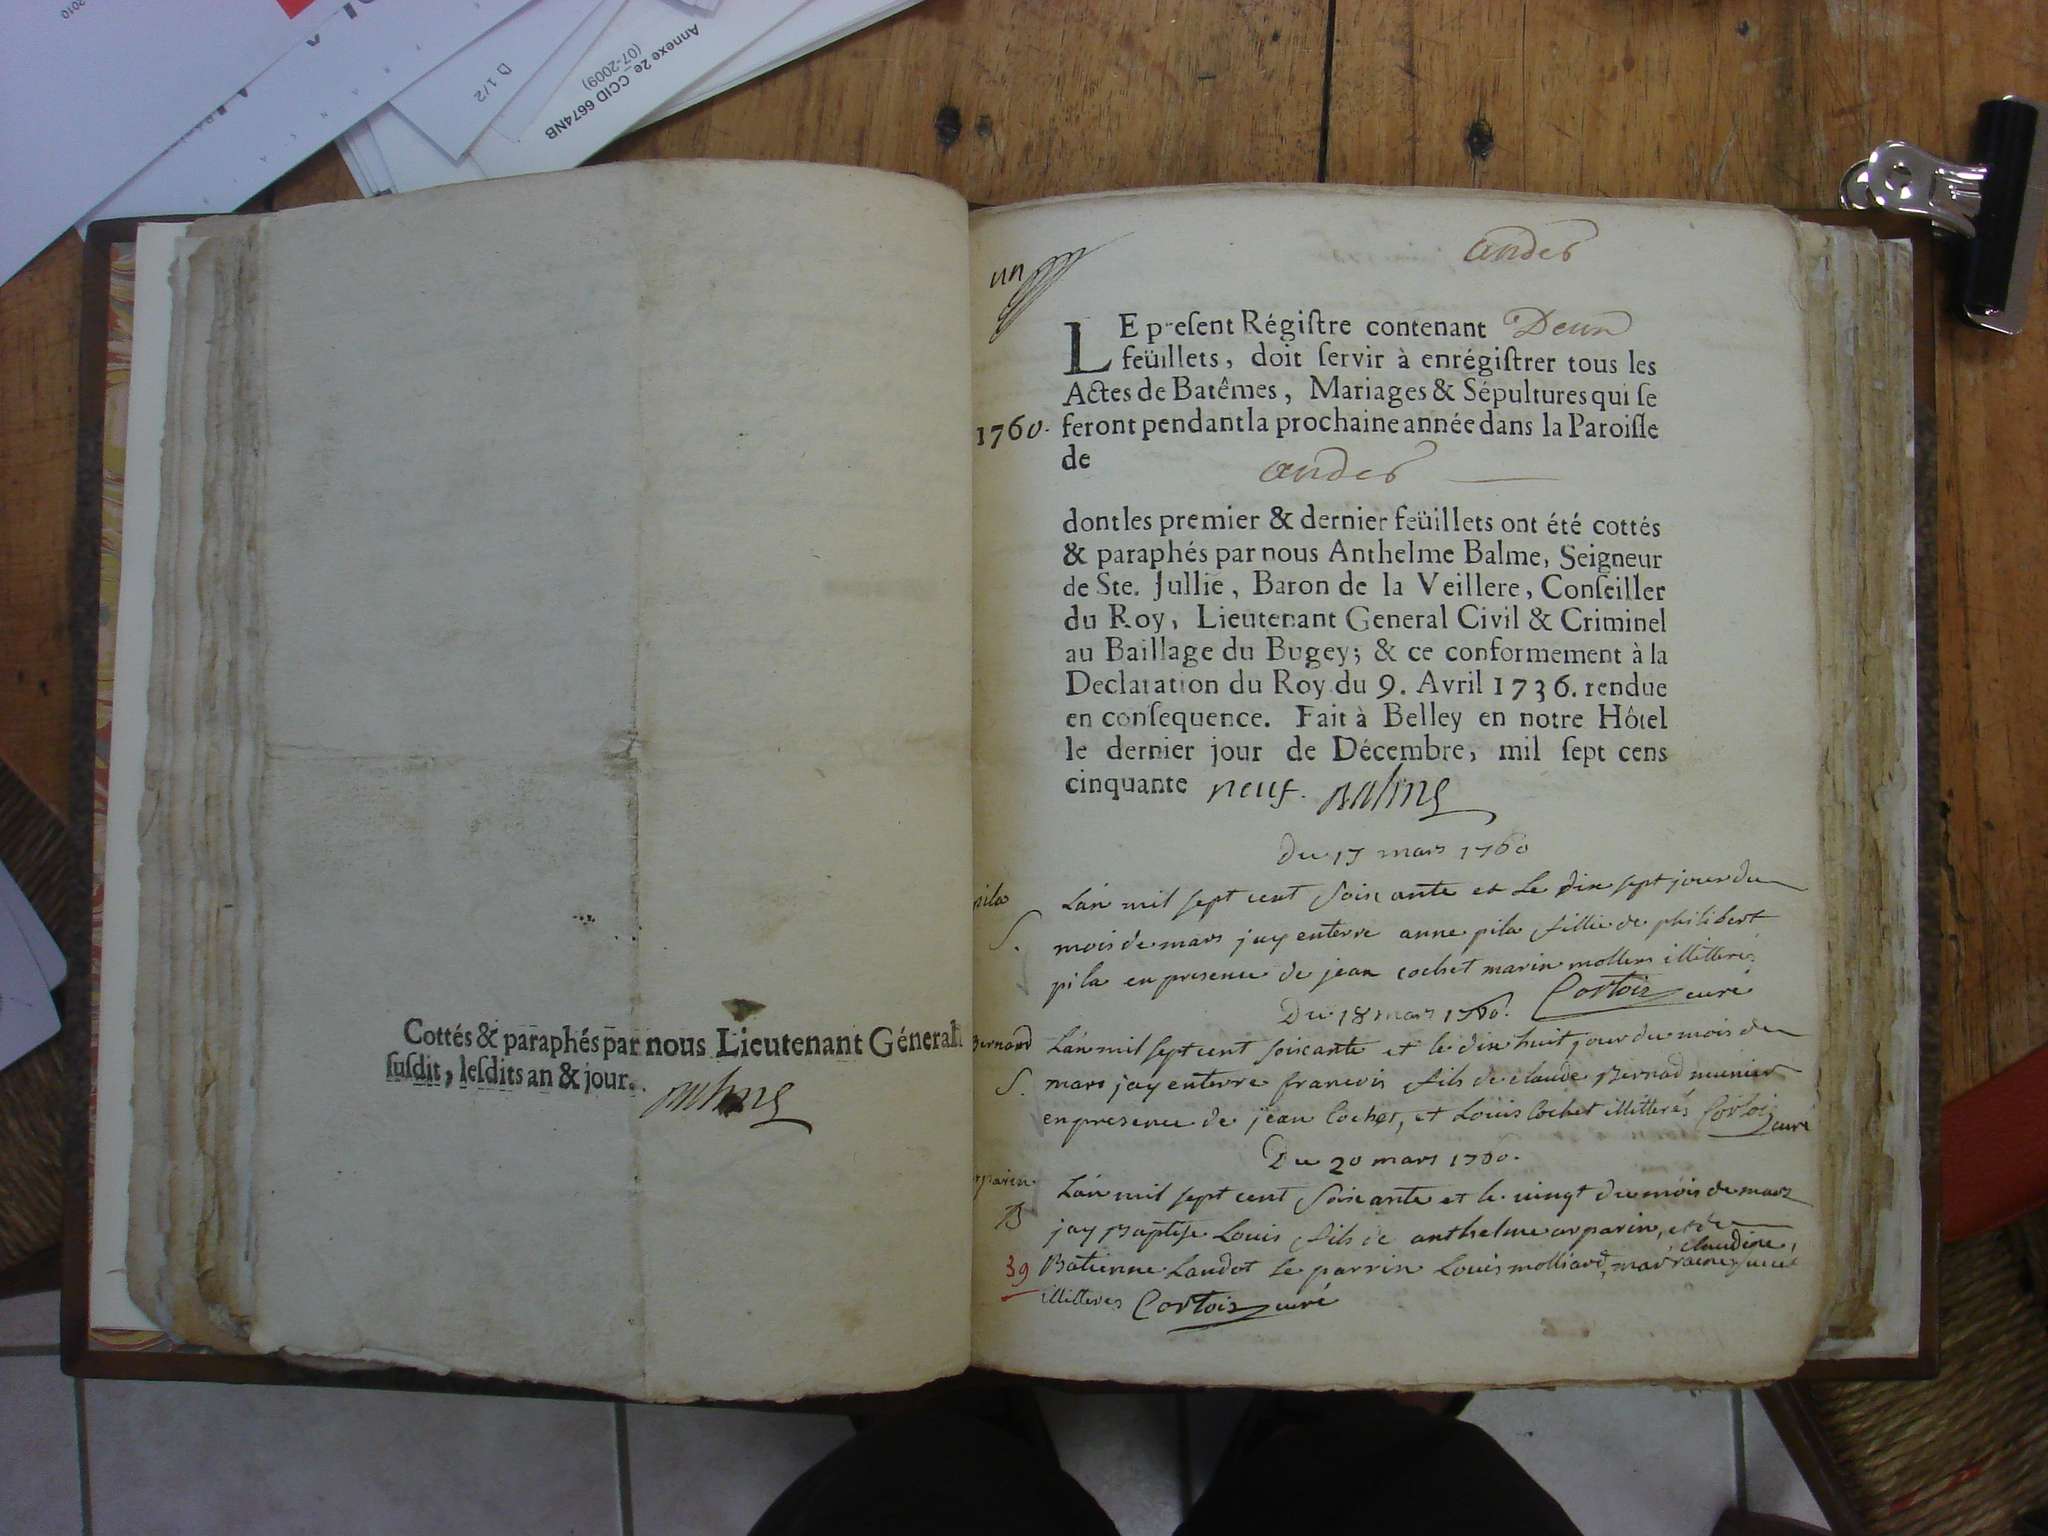 2010
D 1/2
Annexe 2e CCID 6674NB
(07-2009)
Cottés & paraphés par nous Lieutenant Géneral
ſuſdit, leſdits an & jour.
Balme
un
andes
LE preſent Régiſtre contenant Deux
feüillets, doit ſervir à enrégiſtrer tous les
Actes de Batêmes, Mariages & Sépultures qui ſe
1760. feront pendant la prochaine année dans la Paroiſſe
de andes
dont les premier & dernier feüillets ont été cottés
& paraphés par nous Anthelme Balme, Seigneur
de Ste. Jullie, Baron de la Veillere, Conſeiller
du Roy, Lieutenant General Civil & Criminel
au Baillage du Bugey; & ce conformement à la
Declaration du Roy du 9. Avril 1736. rendue
en conſequence. Fait à Belley en notre Hôtel
le dernier jour de Décembre, mil ſept cens
cinquante neuf. Balme
Du 17 mars 1760
pila L'an mil sept cent soixante et Le dix sept jour du
S. mois de mars jay enterre anne pila fillie de philibert
pila en presence de jean cochet marin mollers illitteres
Cortois curé
Du 18 mars 1760.
Bernard L'an mil sept cent soixante et le dix huit jour du mois de
S. mars jay enterre francois fils de claude Bernad munier
en presence de jean Cochet, et Louis Cochet illitterés Cortois curé
Du 20 mars 1760.
arparin L'an mil sept cent soixante et le vingt du mois de mars
B jay Baptise Louis fils de anthelme arparin, et de
claudine,
39 Batienne Landot le parrin Louis molliard, marraine
illitteres Cortois curé